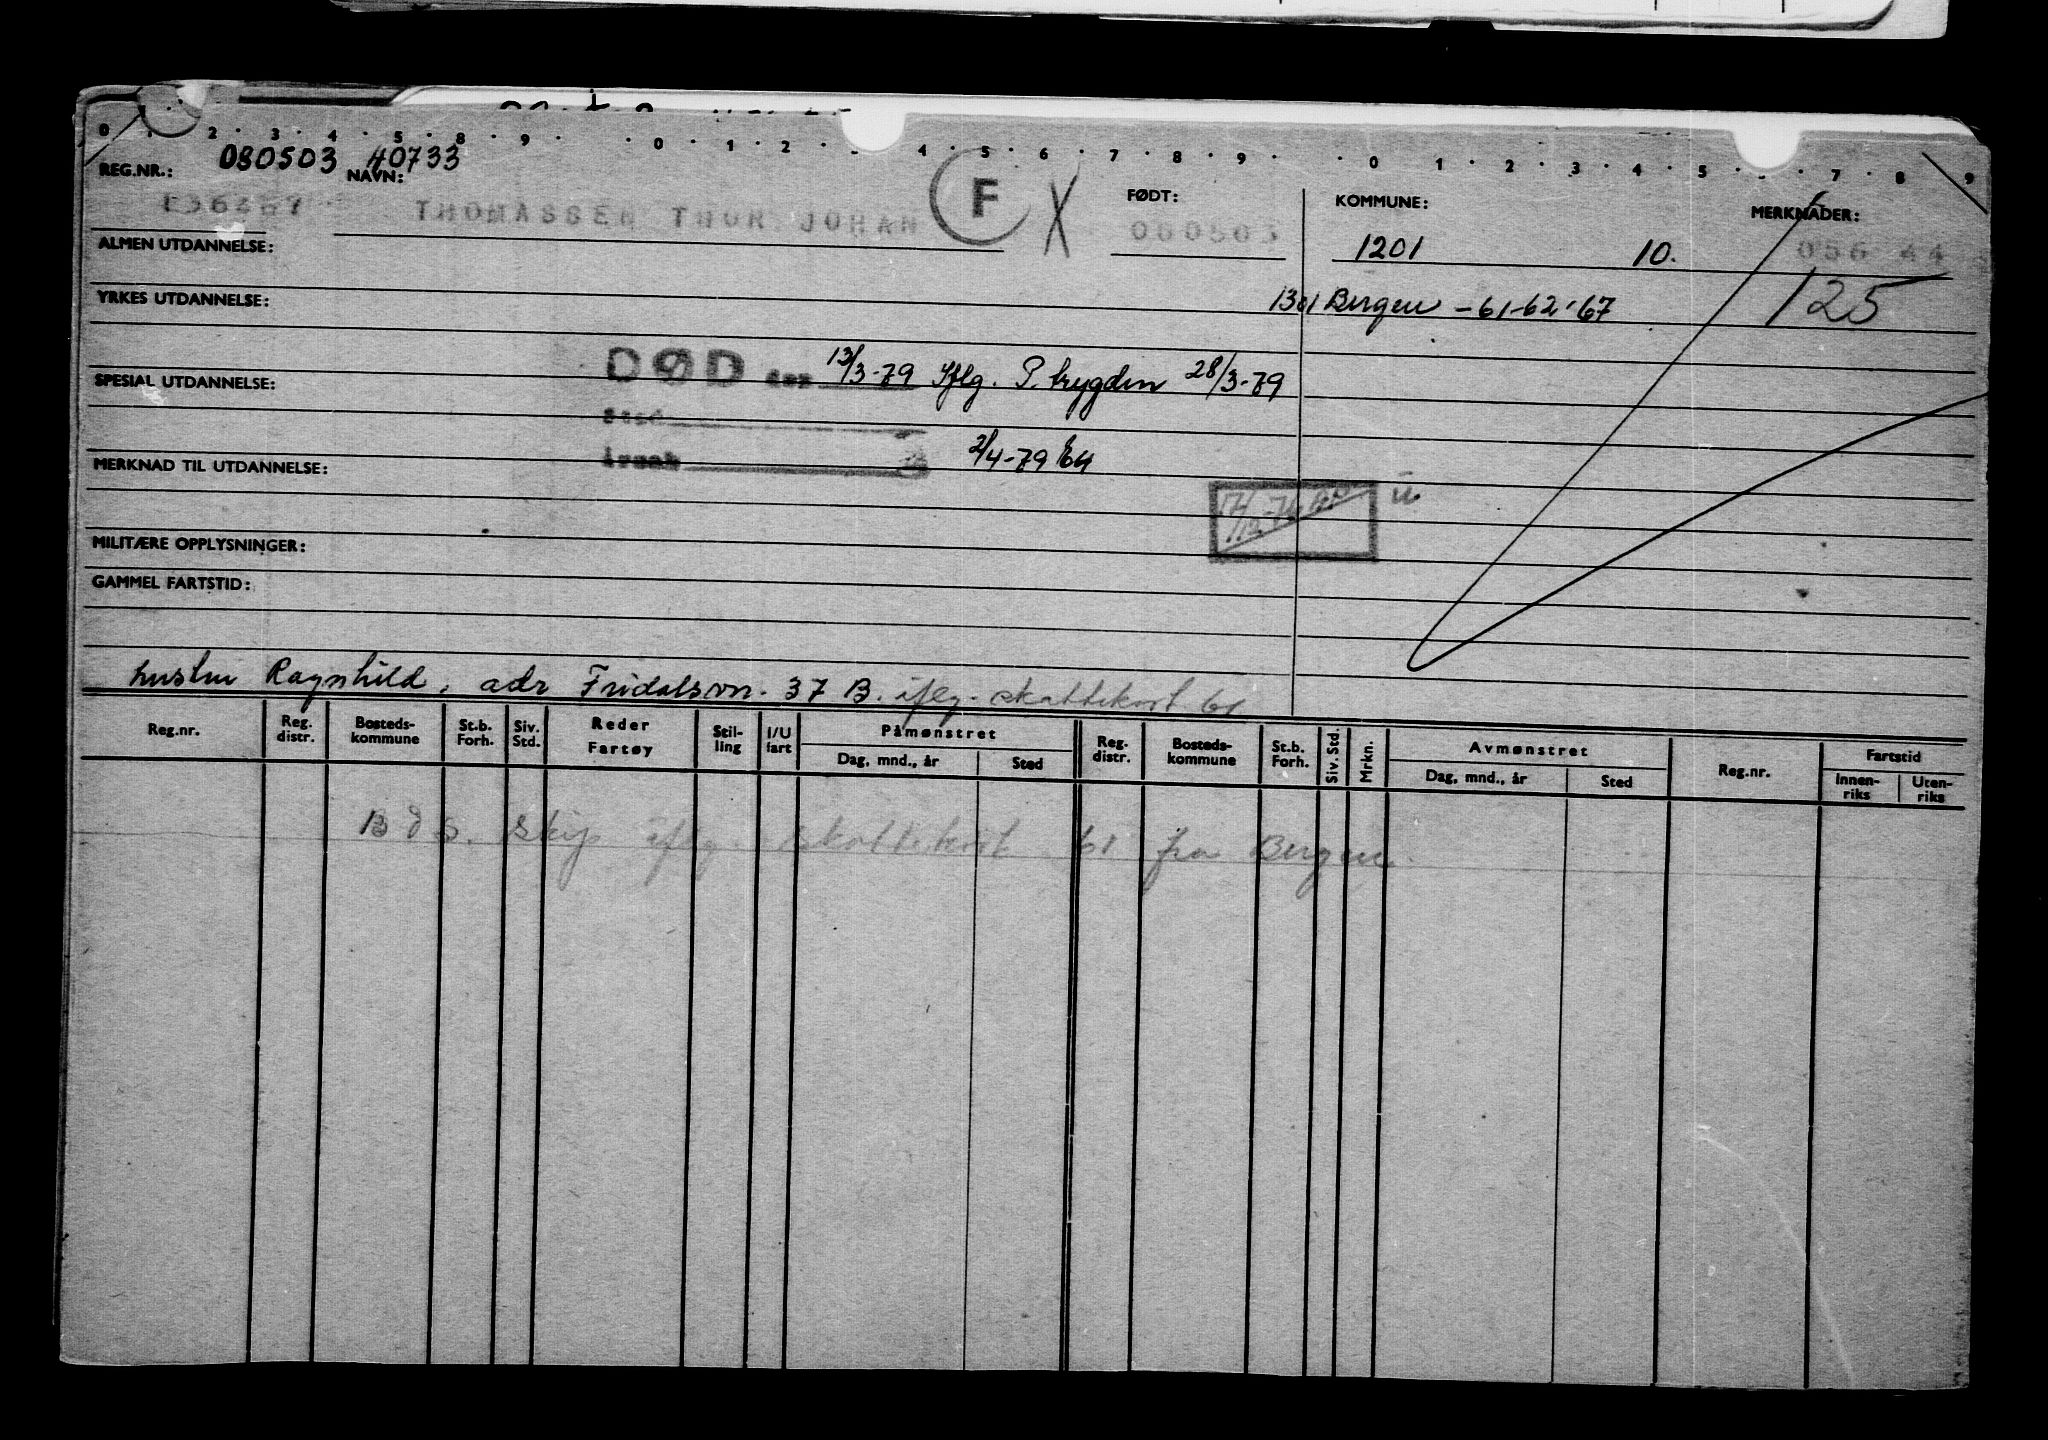 0 1 · 2 · 3 · 4 · 5 · 8 · 9 · · 0 · 1 · 2 · - 4 · 5 · 6 · 7 · 8 · 9 · · 0 · 1 · 2 · 3 · 4 · 5 · 7 · 8 · 9
REG.NR.: 080503 40733 NAVN: F X FØDT: KOMMUNE: MERKNADER:
THOMASSEN THOR JOHAN 080503 1201 10. 056 44
ALMEN UTDANNELSE:
YRKES UTDANNELSE: 1301 Bergen - 61-62-67 125
DØD den 13/3-79 Iflg. P. trygden 28/3-79
SPESIAL UTDANNELSE:
Sted
årsak 2/4-79
MERKNAD TIL UTDANNELSE:
MILITÆRE OPPLYSNINGER:
GAMMEL FARTSTID:
hustru Ragnhild, adr Fridalsvn. 37 B. iflg. skattekort 61
Reg.nr. Reg. distr. Bosteds-kommune St.b. Forh. Siv. Std. Reder Fartøy Stil-ling I/U fart Påmønstret Reg. distr. Bosteds-kommune St.b. Forh. Siv. Std. Mrkn. Avmønstret Reg.nr. Fartstid
Dag, mnd., år Sted Dag, mnd., år Sted Innen-riks Uten-riks
B d S. skip iflg. skattekort 61 fra Bergen.